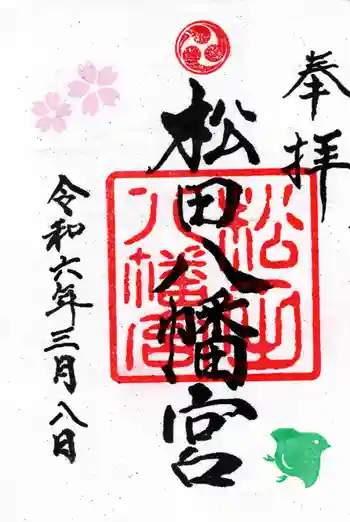 奉拝
松田八幡宮
松田
八幡宮
令和六年三月八日